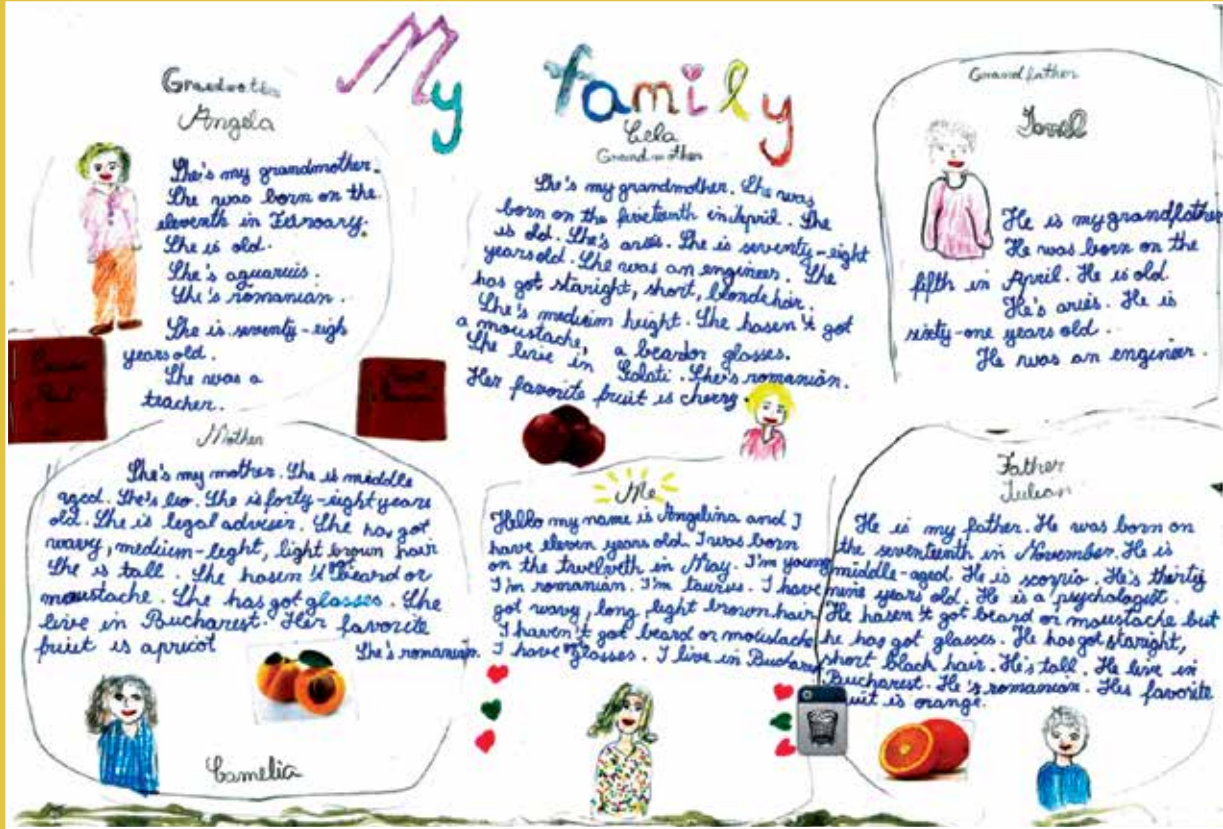 My family
Grandmother
Angela
She's my grandmother.
She was born on the
eleventh in February.
She is old.
She's aquarius.
She's romanian.
She is seventy-eigh
years old.
She was a
teacher.
Lela
Grandmother
She's my grandmother. She was
born on the in April. She
is old. She's aries. She is seventy-eight
years old. She was an engineer. She
has got staright, short, blonde hair.
She's medium height. She hasen't got
a moustache, a beard or glasses.
She live in Galati. She's romanian.
Her favorite fruit is cherry.
Grandfather
He is my grandfather
He was born on the
fifth in April. He is old
He's aries. He is
sixty-one years old.
He was an engineer.
Mother
She's my mother. She is middle
aged. She's leo. She is forty-eight years
old. She is legal adviser. She has got
wavy, medium-leght, light brown hair
She is tall. She hasen't beard or
moustache. She has got glasses. She
live in Bucharest. Her favorite
fruit is apricot
She's romanian.
Camelia
Me
Hello my name is Angelina and I
have eleven years old. I was born
on the in May. I'm young
I'm romanian. I'm taurus. I have
got wavy, long light brown hair
I haven't got beard or moustache
I have glasses. I live in
Father
Iulian
He is my father. He was born on
the seventeenth in November. He is
middle-aged. He is scorpio. He's thirty
nine years old. He is a psychologist.
He hasen't got beard or moustache but
he has got glasses. He has got staright,
short black hair. He's tall. He live in
Bucharest. He's romanian. His favorite
uit is orange.